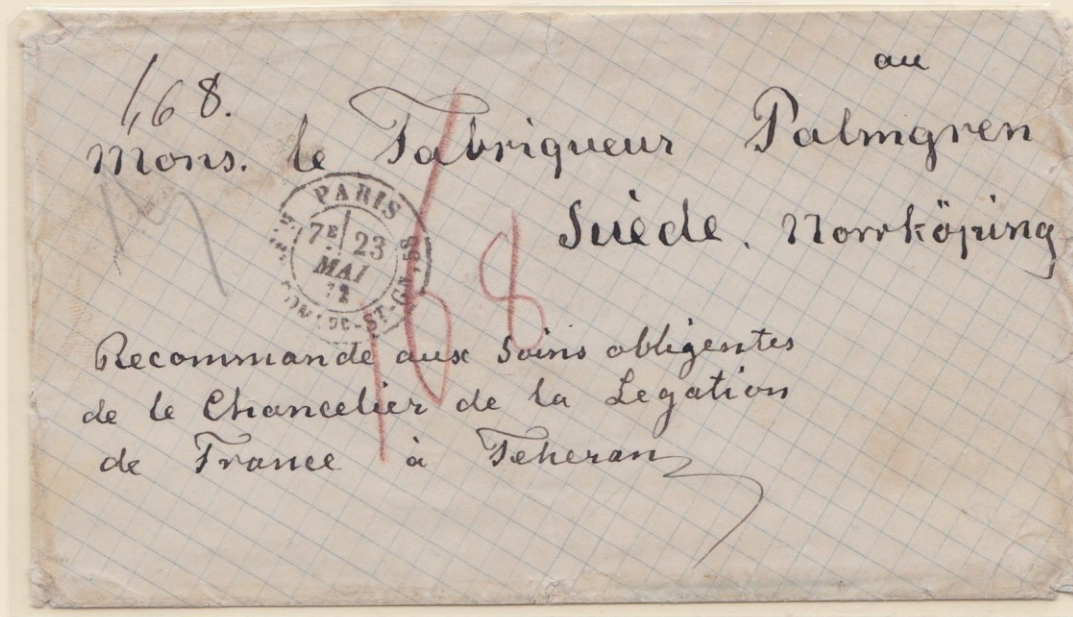 au
168.
Mons. le Fabriqueur Palmgren
Suède. Norrköping
PARIS
7E 23
MAI
72
ST-GN. 58
168
Recommande aux Soins obligentes
de le Chancelier de la Legation
de France à Teheran